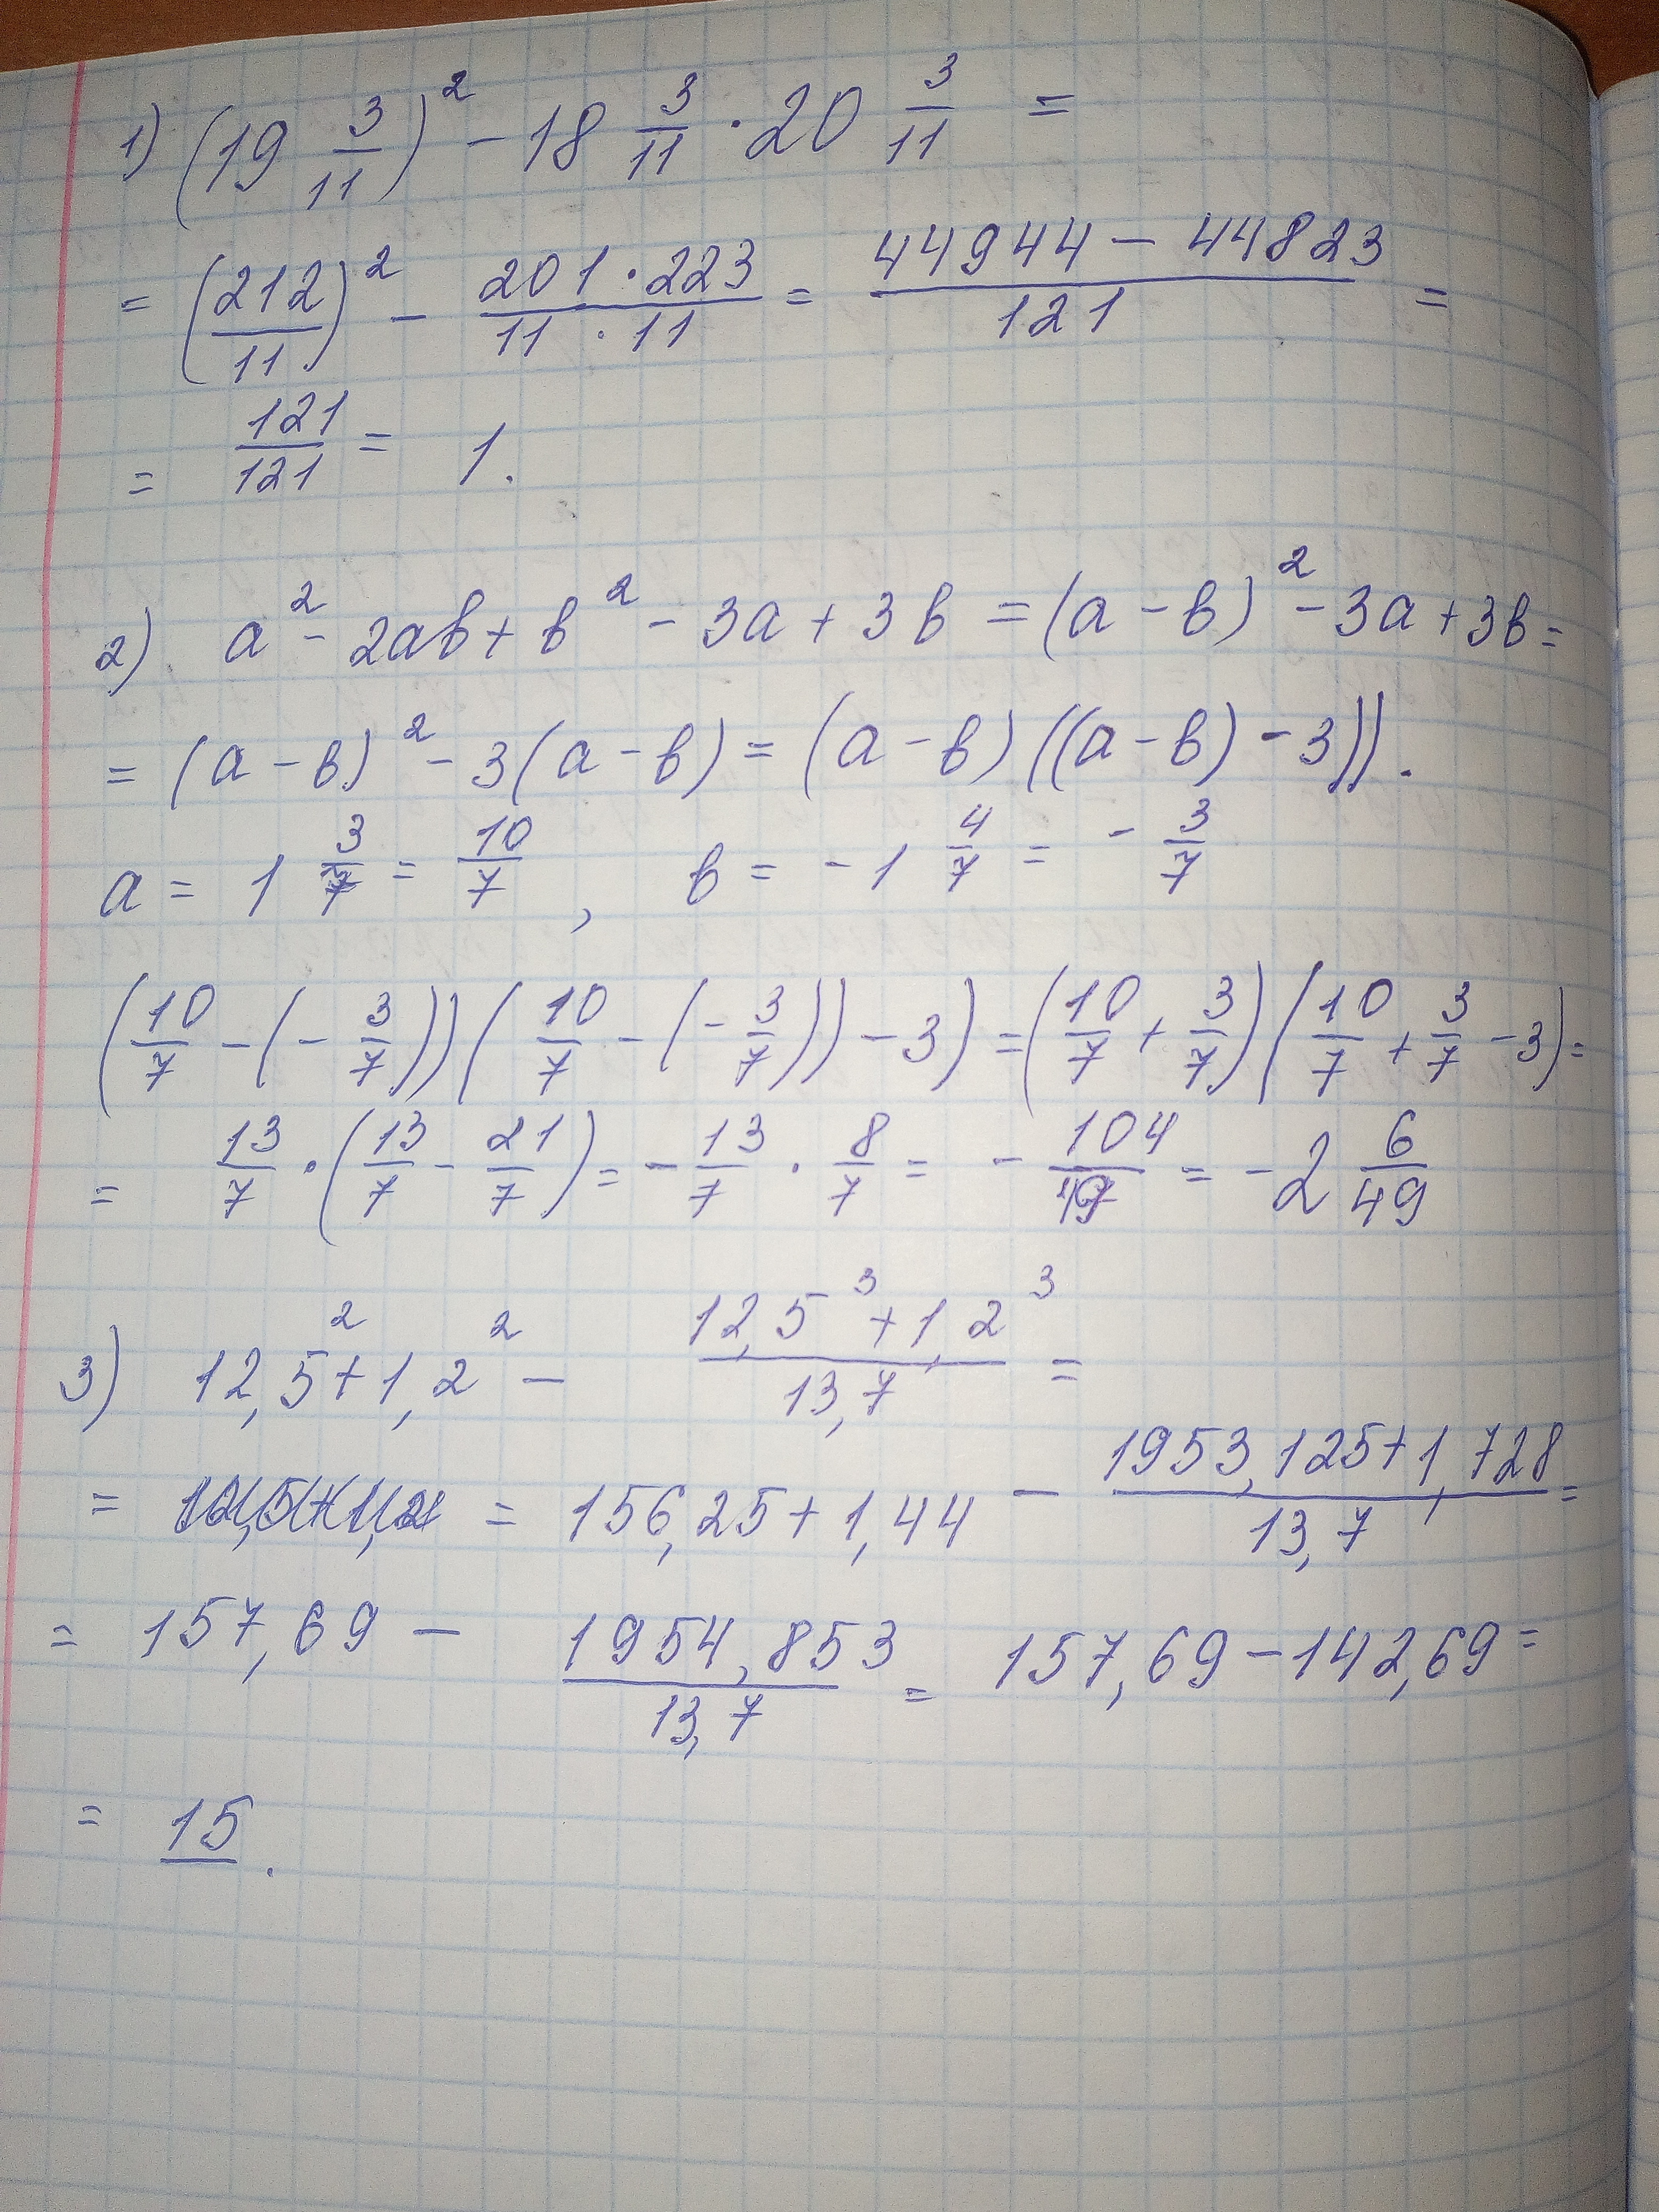 1) (19 3/11)² - 18 3/11 · 20 3/11 =
= (212/11)² - 201·223/11·11 = 44944 - 44823/121 =
= 121/121 = 1.
2) a² - 2ab + b² - 3a + 3b = (a - b)² - 3a + 3b =
= (a - b)² - 3(a - b) = (a - b)((a - b) - 3)).
a = 1 3/7 = 10/7, b = -1 4/7 = - 3/7
(10/7 - (- 3/7))(10/7 - (- 3/7)) - 3) = (10/7 + 3/7)(10/7 + 3/7 - 3) =
= 13/7 · (13/7 - 21/7) = - 13/7 · 8/7 = - 104/49 = -2 6/49
3) 12,5² + 1,2² - 12,5³ + 1,2³/13,7 =
= = 156,25 + 1,44 - 1953,125 + 1,728/13,7 =
= 157,69 - 1954,853/13,7 = 157,69 - 142,69 =
= 15.